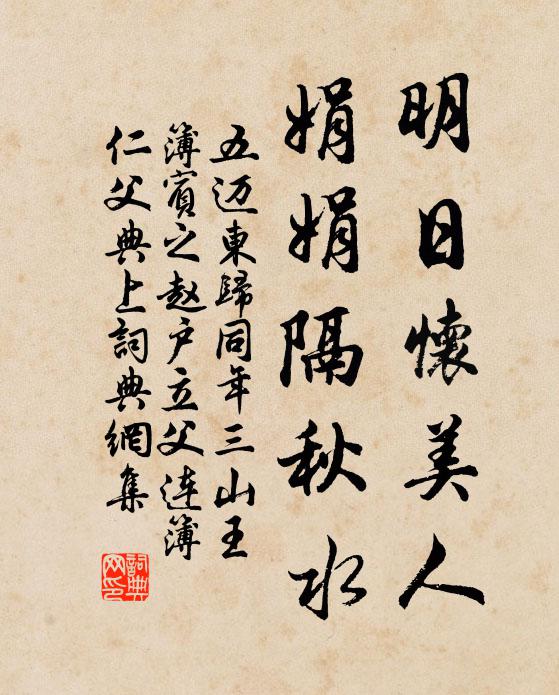 明日懷美人
娟娟隔秋水
五迈東歸同年三山王
簿賓之赵户立父连簿
仁父典上詞典網集
詞典网印